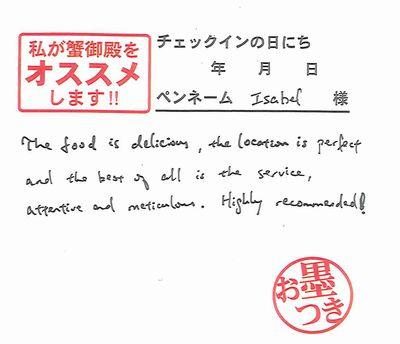 私が蟹御殿を
オススメ
します!!
チェックインの日にち
年 月 日
ペンネーム Isabel 様
The food is delicious, the location is perfect
and the best of all is the service,
attentive and meticulous. Highly recommended!
お墨つき